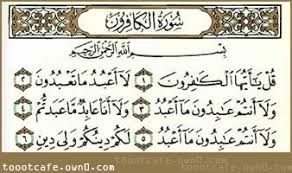 سُورَةُ الكَافِرُونَ
بِسْمِ اللَّهِ الرَّحْمَٰنِ الرَّحِيمِ
قُلْ يَا أَيُّهَا الْكَافِرُونَ ١ لَا أَعْبُدُ مَا تَعْبُدُونَ ٢
وَلَا أَنتُمْ عَابِدُونَ مَا أَعْبُدُ ٣ وَلَا أَنَا عَابِدٌ مَّا عَبَدتُّمْ ٤
وَلَا أَنتُمْ عَابِدُونَ مَا أَعْبُدُ ٥ لَكُمْ دِينُكُمْ وَلِيَ دِينِ ٦
toootcafe-own0.com